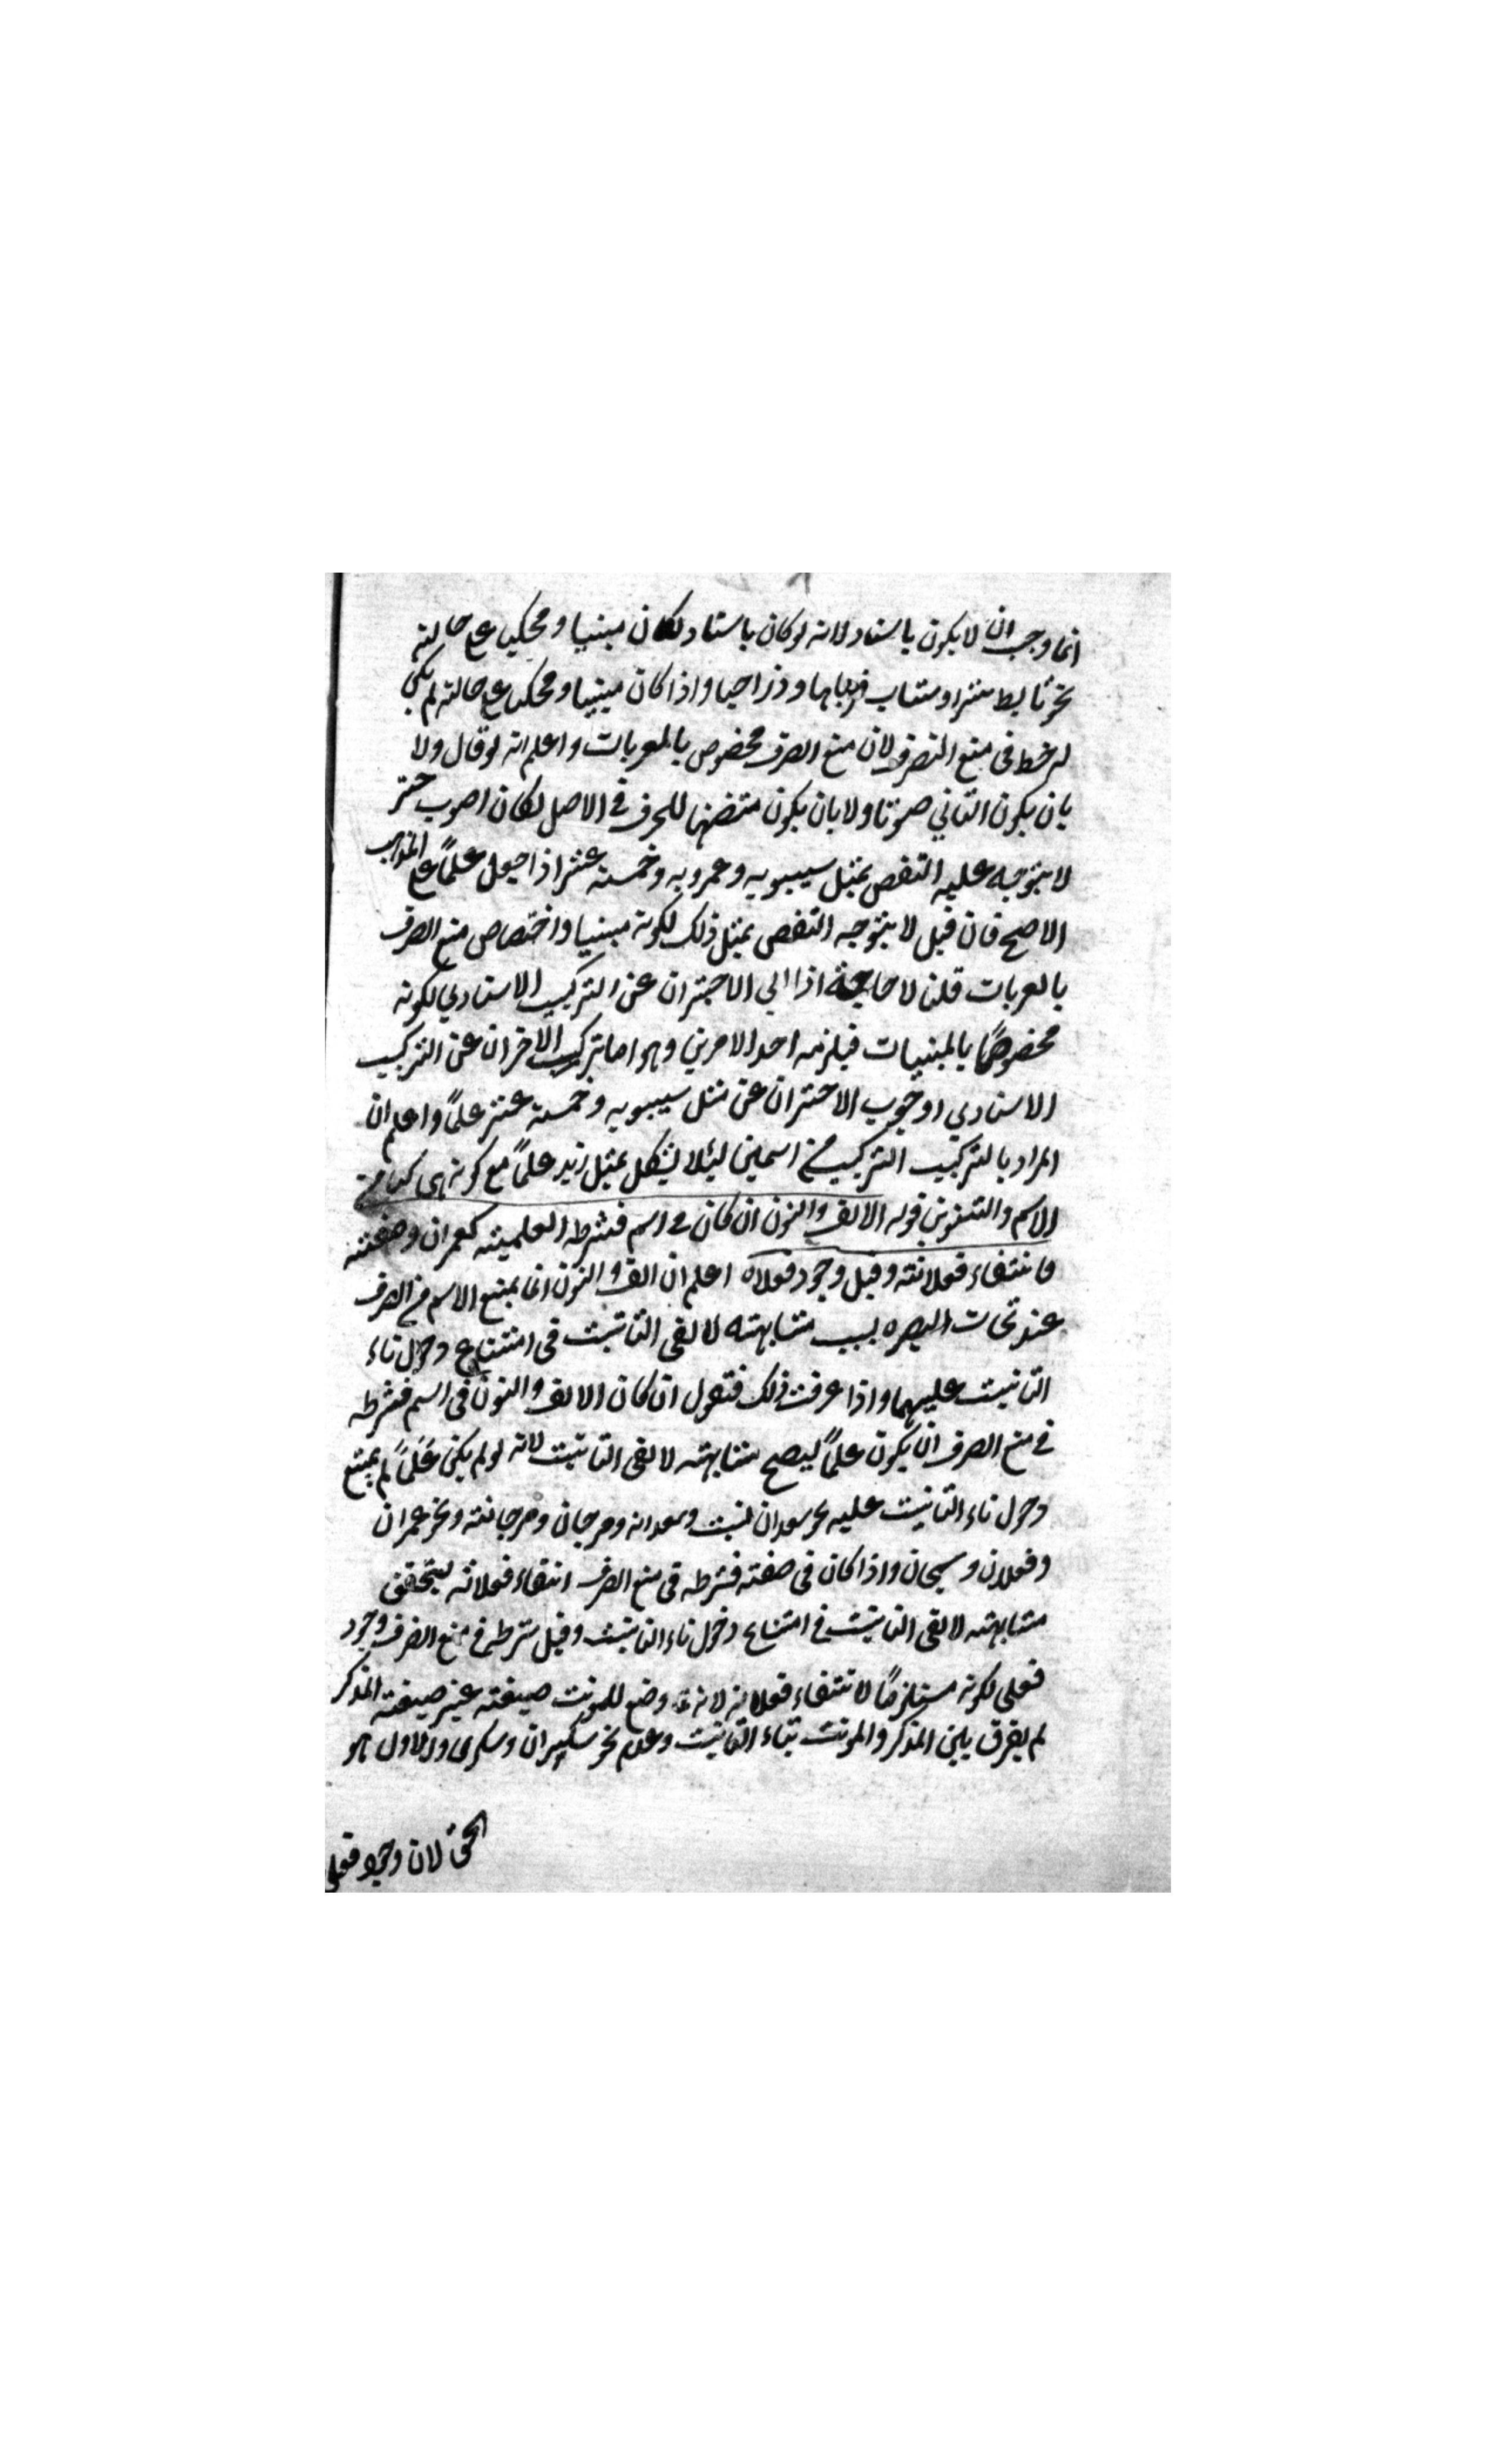 انما وجب ان لا يكون باسناد لانه لو كان باسناد لكان مبنيا ومحكيا على حالته
نحو تابط شرا وشاب قرناها وذراحبا واذا كان مبنيا ومحكيا على حالته لم يكن
له خط فى منع الصرف لان منع الصرف مخصوص بالمعربات واعلم انه لو قال ولا
بان يكون الثاني صوتا ولا بان يكون متضمنا للحرف في الاصل لكان اصوب حتى
لا يتوجه عليه النقض بمثل سيبويه وعمرويه وخمسة عشر اذا جعل علمًا على المذهب
الاصح فان قيل لا يتوجه النقض بمثل ذلك لكونه مبنيا واختصاص منع الصرف
بالعربات قلنا لا حاجة اذا الي الاحتران عن التركيب الاسنادي لكونه
مخصوصًا بالمبنيات فيلزمه احد الامرين وهو اما ترك الاخران عن التركيب
الاسنادي او وجوب الاحتران عن مثل سيبويه وخمسة عشر علمًا واعلم ان
المراد بالتركيب التركيب من اسمين ليئلا يشكل بمثل زيد علمًا مع كونه مركبا من
الاسم والتنوين قوله الالف والنون ان كان في اسم فشرطه العلمية كعمران وصفته
فانتفاء فعلانته وقيل وجود فعلاه اعلم ان الف والنون انما يمنع الاسم من الصرف
عند نحات البصره بسبب مشابهته لالفى التانيث فى امتناع دخول تاء
التانيث عليهما واذا عرفت ذلك فنقول ان كان الالف والنون فى اسم فشرطه
في منع الصرف ان يكون علمًا ليصح مشابهته لالفى التانيث لانه لو لم يكن عَلَمًا لم يمتنع
دخول تاء التانيث عليه نحو سعدان لنبت وسعدانه ومرجان ومرجانته ونحو عمران
وفعلان وسبحان واذا كان فى صفته فشرطه فى منع الصرف انتفاء فعلانه ليتحقق
مشابهته لالفى التانيث في امتناع دخول تاء التانيث وقيل شرطه في منع الصرف وجود
فعلى لكونه مستلزمًا لانتفاء فعلانه لانه وضع للمونث صيغته غير صيغته المذكر
لم يفرق بين المذكر والمونث بتاء التانيث وعدم نحو سكيران وسكرى والاول هو
الحق لان وجود فعلى